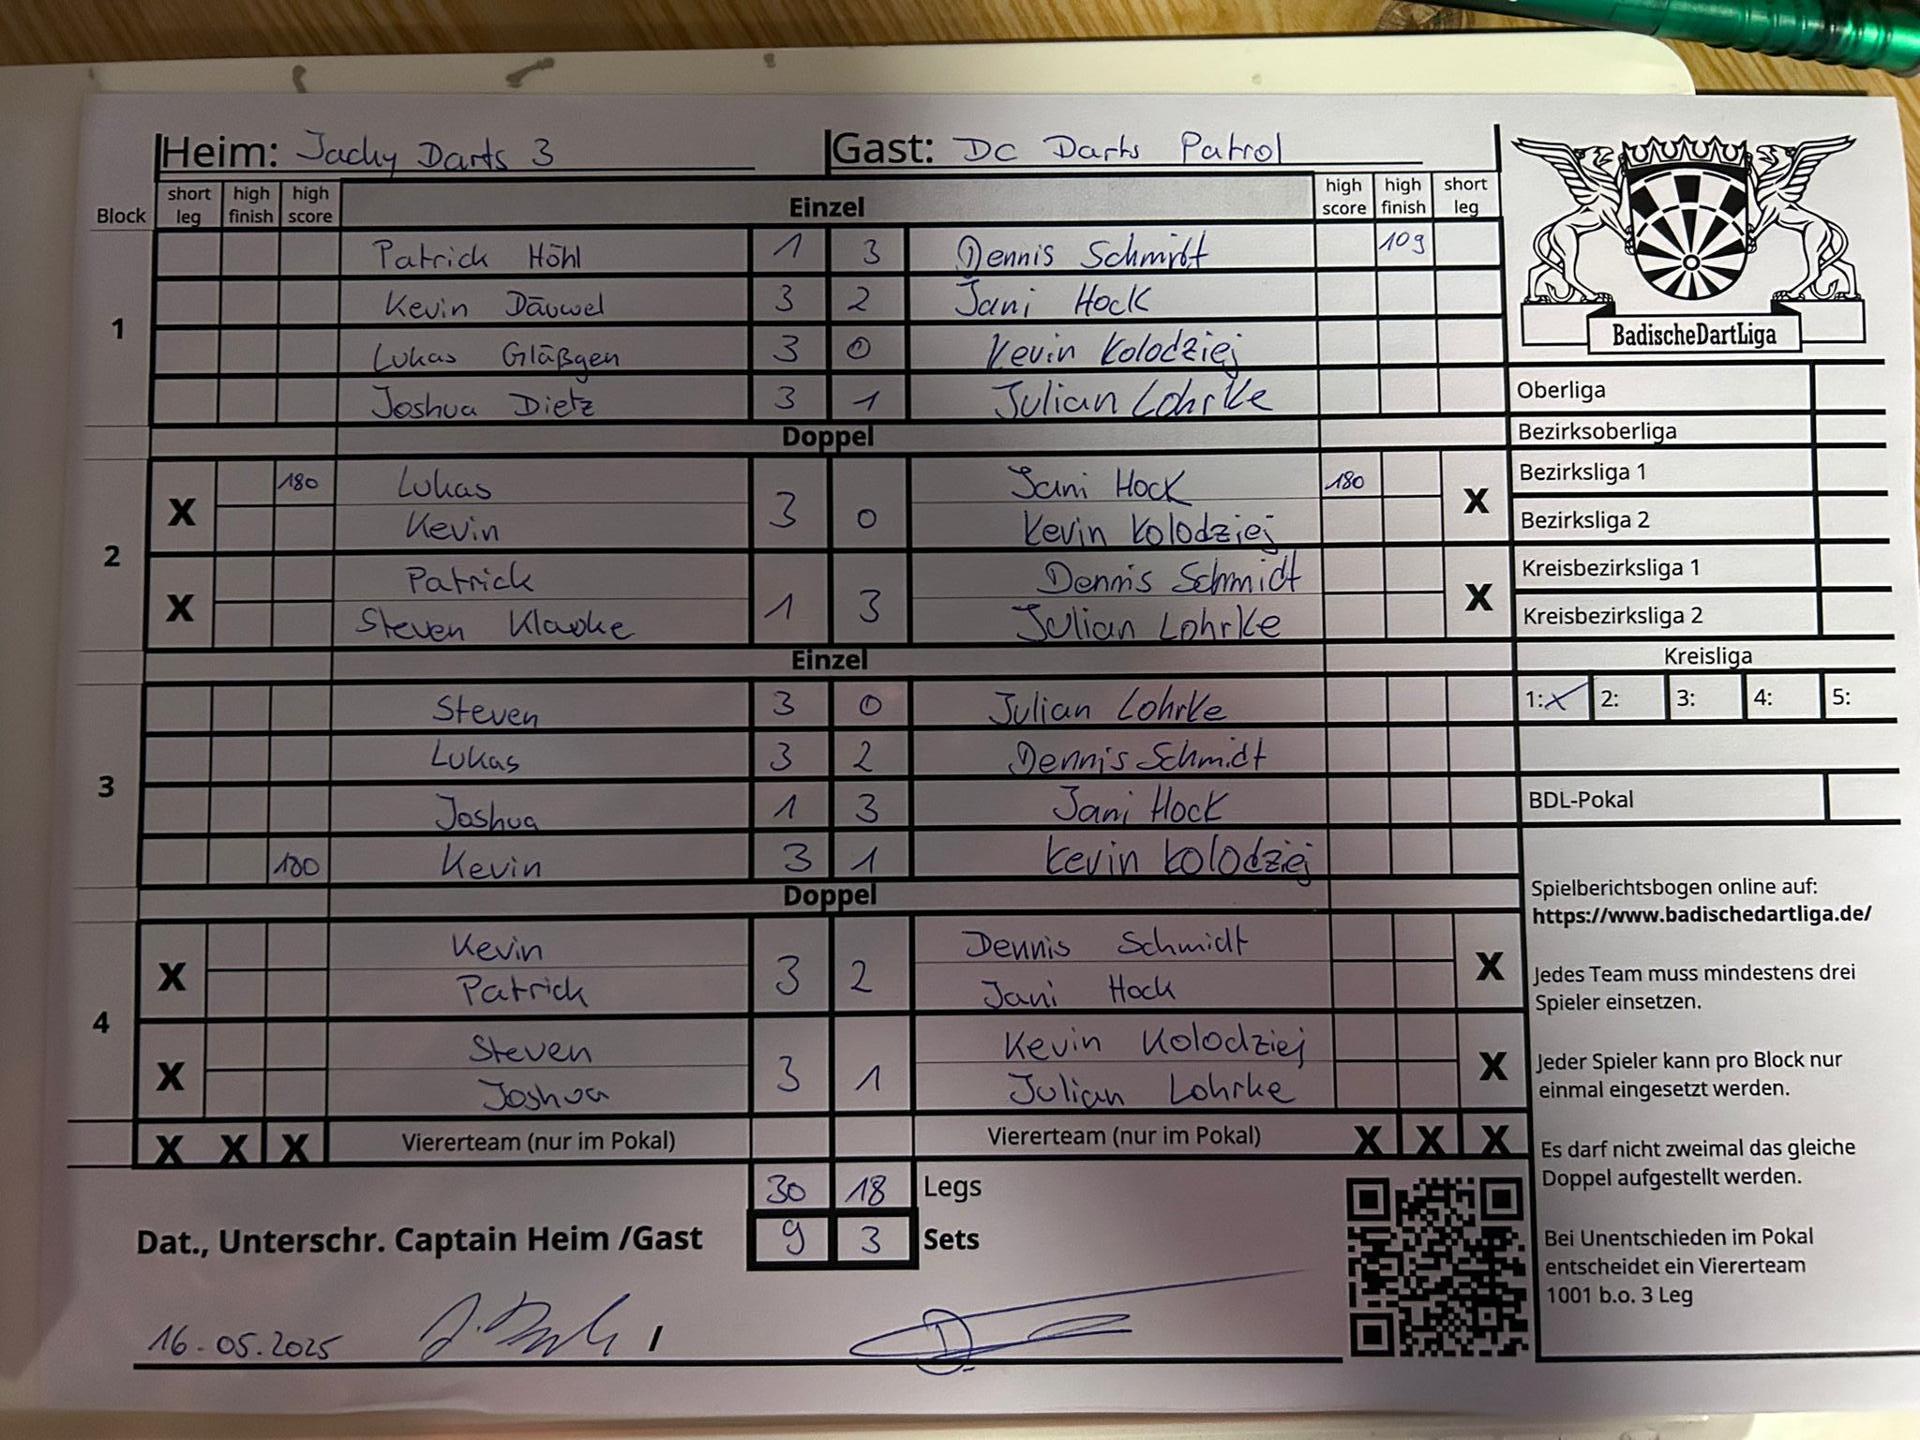 Heim: Jachy Darts 3 Gast: DC Darts Patrol
Block short leg high finish high score Einzel high score high finish short leg
1
Patrick Höhl 1 3 Dennis Schmidt 109
Kevin Däuwel 3 2 Jani Hock
Lukas Gläßgen 3 0 Kevin Kolodziej
Joshua Dietz 3 1 Julian Lohrke
Doppel
2
X 180 Lukas 3 0 Jani Hock 180 X
Kevin Kevin Kolodziej
X Patrick 1 3 Dennis Schmidt X
Steven Klaoke Julian Lohrke
Einzel
3
Steven 3 0 Julian Lohrke
Lukas 3 2 Dennis Schmidt
Joshua 1 3 Jani Hock
180 Kevin 3 1 Kevin Kolodziej
Doppel
4
X Kevin 3 2 Dennis Schmidt X
Patrick Jani Hock
X Steven 3 1 Kevin Kolodziej X
Joshua Julian Lohrke
X X X Viererteam (nur im Pokal) Viererteam (nur im Pokal) X X X
30 18 Legs
Dat., Unterschr. Captain Heim /Gast 9 3 Sets
16.05.2025 /
BadischeDartLiga
Oberliga
Bezirksoberliga
Bezirksliga 1
Bezirksliga 2
Kreisbezirksliga 1
Kreisbezirksliga 2
Kreisliga
1: X 2: 3: 4: 5:
BDL-Pokal
Spielberichtsbogen online auf:
https://www.badischedartliga.de/
Jedes Team muss mindestens drei
Spieler einsetzen.
Jeder Spieler kann pro Block nur
einmal eingesetzt werden.
Es darf nicht zweimal das gleiche
Doppel aufgestellt werden.
Bei Unentschieden im Pokal
entscheidet ein Viererteam
1001 b.o. 3 Leg